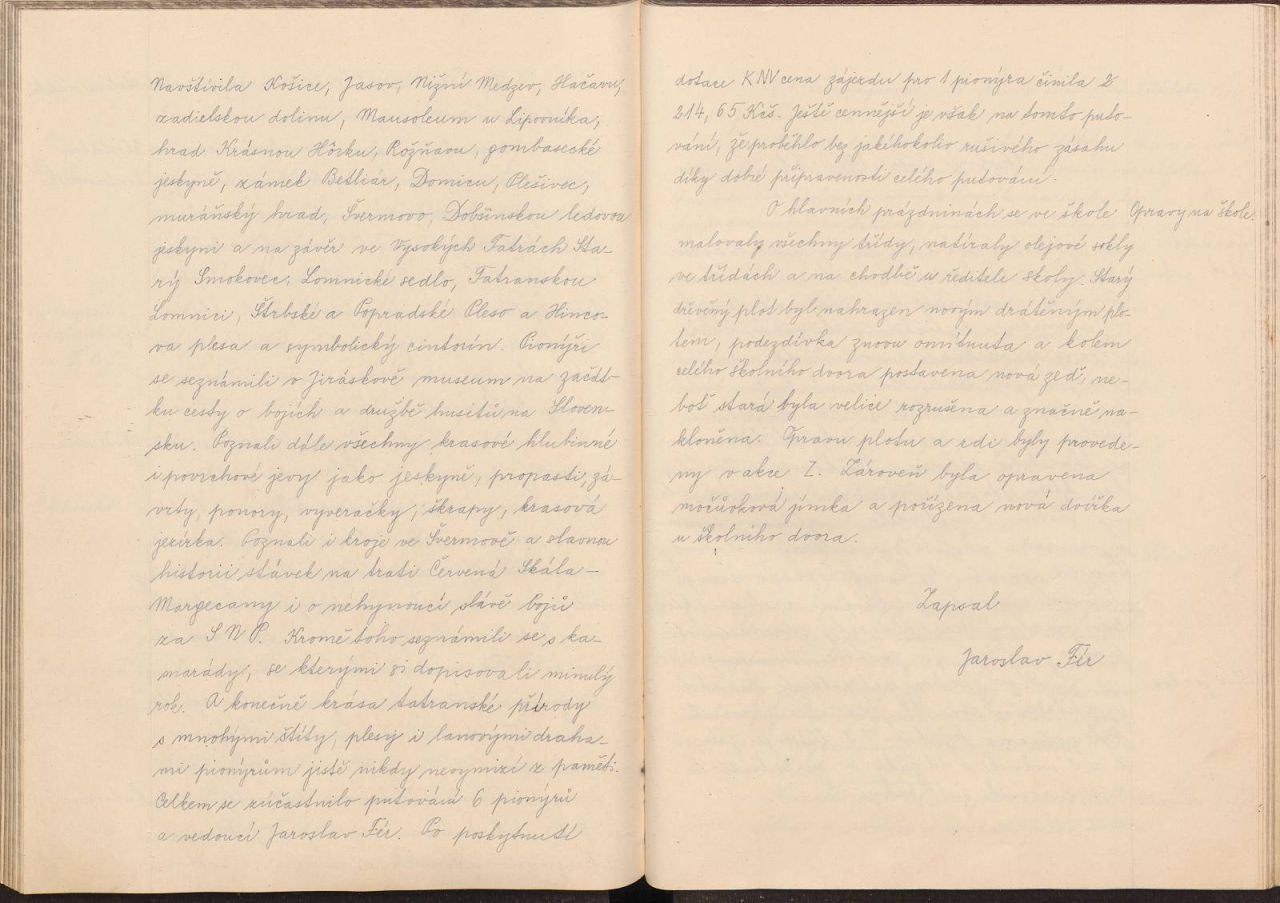 Navštívila Košice, Jasov, Nižní Medzev, Hačavu,
zadielskou dolinu, Mausoleum u Lipovníka,
hrad Krásnou Hôrku, Rožňavu, gombasecké
jeskyně, zámek Betliár, Domicu, Plešivec,
muráňský hrad, Švermovo, Dobšinskou ledovou
jeskyni a na závěr ve Vysokých Tatrách Sta-
rý Smokovec, Lomnické sedlo, Tatranskou
Lomnici, Štrbské a Popradské Pleso a Hinco-
va plesa a symbolický cintorín. Pionýři
se seznámili v Jiráskově museum na začát-
ku cesty o bojích a družbě husitů na Sloven-
sku. Poznali dále všechny krasové hlubinné
i povrchové jevy jako jeskyně, propasti, zá-
vrty, ponory, vyveračky, škrapy, krasová
jezírka. Poznali i kroje ve Švermově a slavnou
historii stávek na trati Červená Skála-
Margecany i o nehynoucí slávě bojů
za SNP. Kromě toho seznámili se s ka-
marády, se kterými si dopisovali minulý
rok. A konečně krása tatranské přírody
s mnohými štíty, plesy i lanovými draha-
mi pionýrům jistě nikdy nevymizí z paměti.
Celkem se zúčastnilo putování 6 pionýrů
a vedoucí Jaroslav Fér. Po poskytnutí
dotace KNV cena zájezdu pro 1 pionýra činila 2
214,65 Kčs. Ještě cennější je však na tomto puto-
vání, že proběhlo bez jakéhokoliv rušivého zásahu
díky dobré připravenosti celého putování.
O hlavních prázdninách se ve škole Opravy na škole.
malovaly všechny třídy, natíraly olejové sokly
ve třídách a na chodbě u ředitele školy. Starý
dřevěný plot byl nahrazen novým drátěným plo-
tem, podezdívka znovu omítnuta a kolem
celého školního dvora postavena nová zeď, ne-
boť stará byla velice rozrušena a značně na-
kloněna. Opravu plotu a zdi byly provede-
ny v akci Z. Zároveň byla opravena
močůvková jímka a pořízena nová dvířka
u školního dvora.
Zapsal
Jaroslav Fér